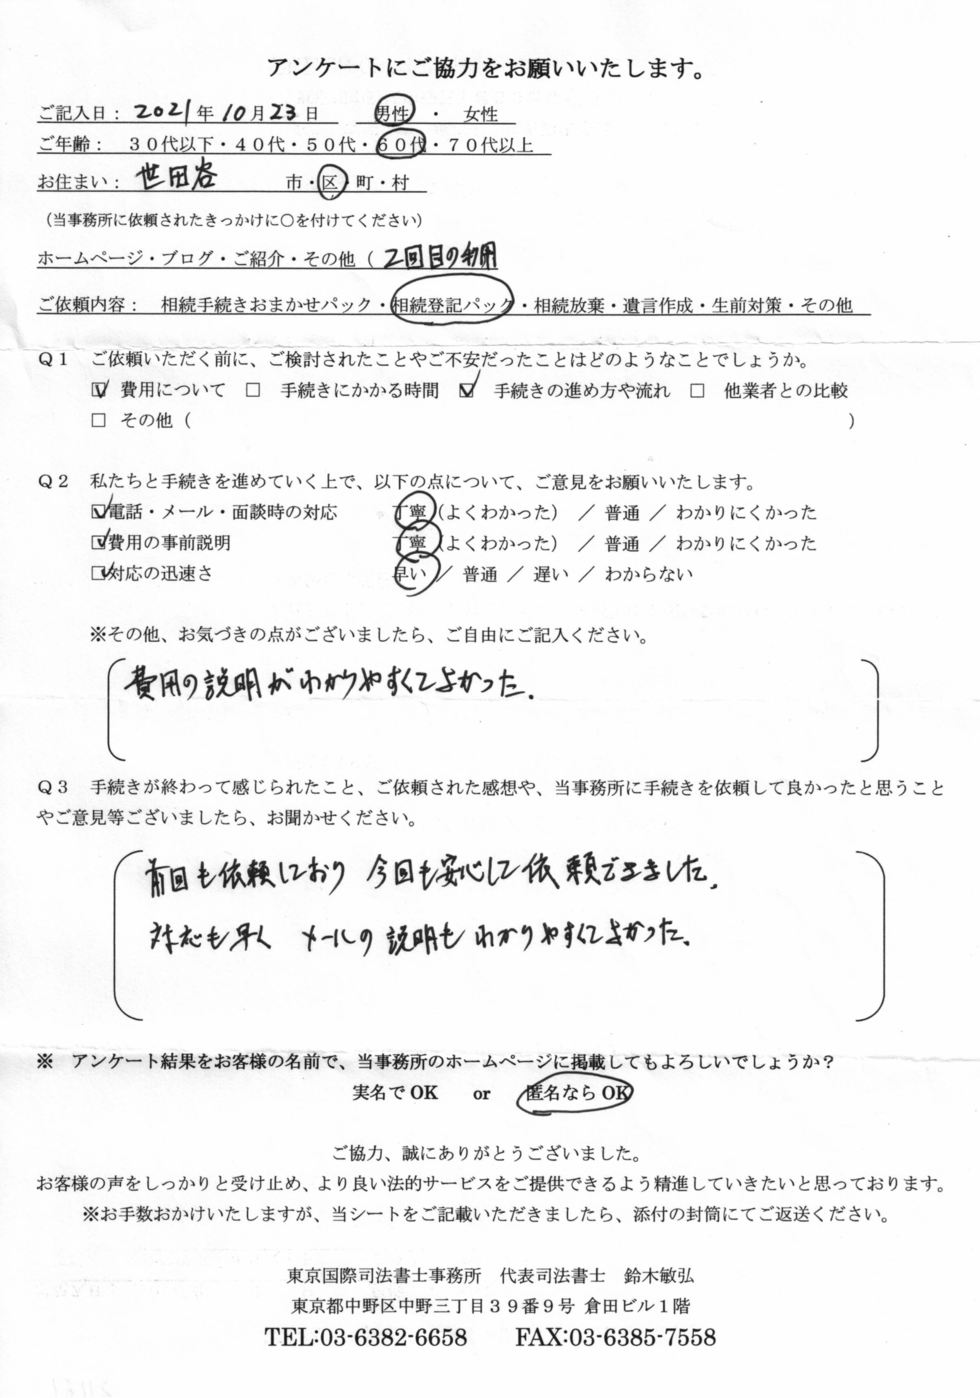 アンケートにご協力をお願いいたします。
ご記入日：2021年10月23日　男性 ・ 女性
ご年齢：　３０代以下・４０代・５０代・６０代・７０代以上
お住まい：世田谷　市・区・町・村
（当事務所に依頼されたきっかけに○を付けてください）
ホームページ・ブログ・ご紹介・その他（ 2回目の利用
ご依頼内容：　相続手続きおまかせパック・相続登記パック・相続放棄・遺言作成・生前対策・その他
Ｑ１　ご依頼いただく前に、ご検討されたことやご不安だったことはどのようなことでしょうか。
☑ 費用について　□ 手続きにかかる時間　☑ 手続きの進め方や流れ　□ 他業者との比較
□ その他（　　　）
Ｑ２　私たちと手続きを進めていく上で、以下の点について、ご意見をお願いいたします。
☑電話・メール・面談時の対応　丁寧（よくわかった） ／ 普通 ／ わかりにくかった
☑費用の事前説明　丁寧（よくわかった） ／ 普通 ／ わかりにくかった
☑対応の迅速さ　早い ／ 普通 ／ 遅い ／ わからない
※その他、お気づきの点がございましたら、ご自由にご記入ください。
費用の説明がわかりやすくてよかった.
Ｑ３　手続きが終わって感じられたこと、ご依頼された感想や、当事務所に手続きを依頼して良かったと思うこと
やご意見等ございましたら、お聞かせください。
前回も依頼しており 今回も安心して依頼できました.
対応も早く メールの説明もわかりやすくてよかった.
※　アンケート結果をお客様の名前で、当事務所のホームページに掲載してもよろしいでしょうか？
実名でOK　or　匿名ならOK
ご協力、誠にありがとうございました。
お客様の声をしっかりと受け止め、より良い法的サービスをご提供できるよう精進していきたいと思っております。
※お手数おかけいたしますが、当シートをご記載いただきましたら、添付の封筒にてご返送ください。
東京国際司法書士事務所　代表司法書士　鈴木敏弘
東京都中野区中野三丁目３９番９号 倉田ビル１階
TEL:03-6382-6658　FAX:03-6385-7558